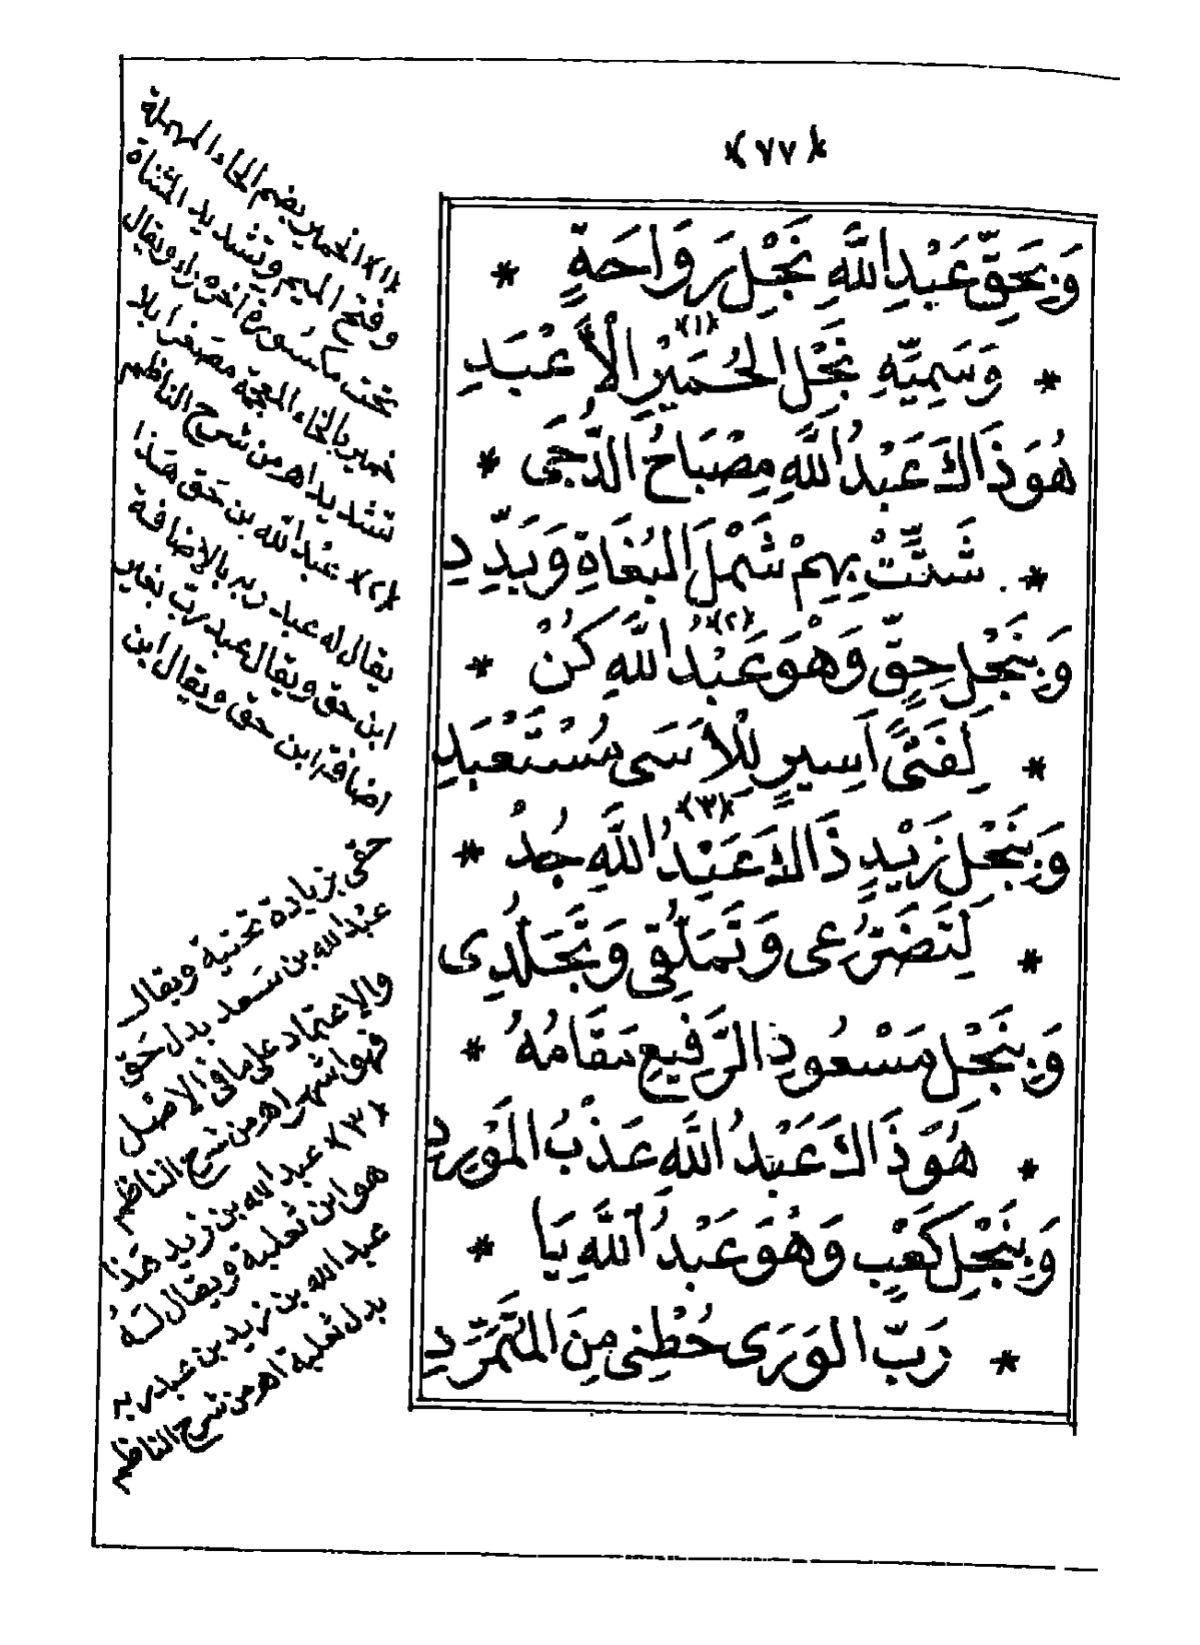 ﴿٧٧﴾
وَبِحَقِّ عَبْدِ اللَّهِ نَجْلِ رَوَاحَةٍ *
* وَسَمِيِّهِ نَجْلِ الْحُمَيْرِ الْأَعْبَدِ (١)
هُوَ ذَاكَ عَبْدُ اللَّهِ مِصْبَاحُ الدُّجَى *
* شَتِّتْ بِهِمْ شَمْلَ الْبُغَاةِ وَبَدِّدِ
وَبِنَجْلِ حِقٍّ وَهْوَ عَبْدُ اللَّهِ كُنْ (٢) *
* لِفَتًى أَسِيرٍ لِلْأَسَى مُسْتَعْبَدِ
وَبِنَجْلِ زَيْدٍ ذَاكَ عَبْدُ اللَّهِ جُدْ (٣) *
* لِتَضَرُّعِى وَتَمَلُّقِى وَتَجَلُّدِى
وَبِنَجْلِ مَسْعُودِ الرَّفِيعِ مَقَامُهُ *
* هُوَ ذَاكَ عَبْدُ اللَّهِ عَذْبُ الْمَوْرِدِ
وَبِنَجْلِ كَعْبٍ وَهُوَ عَبْدُ اللَّهِ يَا *
* رَبَّ الْوَرَى حُطْنِى مِنَ الْمُتَمَرِّدِ
(١) الحمير بضم الحاء المهملة
وفتح الميم وتشديد المثناة
تحت مكسورة آخره راء ويقال
خمير بالخاء المعجمة مصغرا بلا
تشديد اهـ من شرح الناظم
(٢) عبد الله بن حق هذا
يقال له عبد ربه بالاضافة
ابن حق ويقال عبد رب بغير
اضافة ابن حق ويقال ابن
حقى بزيادة تحتية ويقال
عبد الله بن سعد بدل حق
والاعتماد على ما فى الاصل
فهو اشهر اهـ من شرح الناظم
(٣) عبد الله بن زيد هذا
هو ابن ثعلبة ويقال له
عبد الله بن زيد بن عبد ربه
بدل ثعلبة اهـ من شرح الناظم